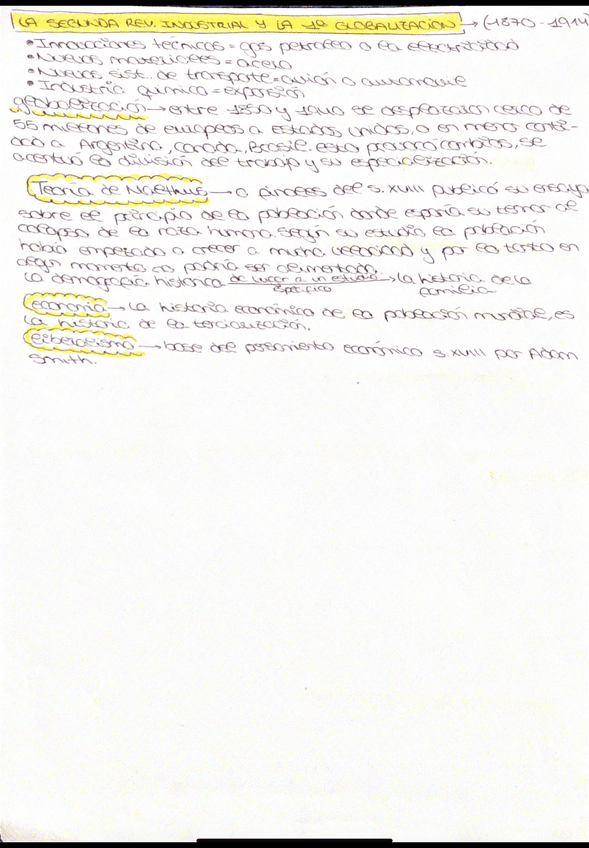 LA SEGUNDA REV. INDUSTRIAL Y LA 1ª GLOBALIZACIÓN → (1870-1914
• Innovaciones técnicas = gas petroleo o la electricidad
• Nuevos materiales = acero
• Nuevos sist. de transporte = avión o automovile
• Industria quimica = expansión
globalización → entre 1850 y 1940 se desplazaron cerca de
55 millones de europeos a Estados Unidos, o en menor canti-
dad a Argentina, Canada, Brasil. esto provocó cambios, se
acentuó la división del trabajo y su especialización.
Teoría de Malthus → a finales del s. XVIII publicó su ensayo
sobre el principio de la población donde exponía su temor al
colapso de la raza humana. Según su estudio la población
había empezado a crecer a mucha velocidad y por lo tanto en
algún momento no podría ser alimentada.
La demografía historica da lugar a un estudio especifico → la historia de la familia
economía → La historia económica de la población mundial, es
la historia de la terciarización.
liberalismo → base del pensamiento económico s. XVIII por Adam
Smith.